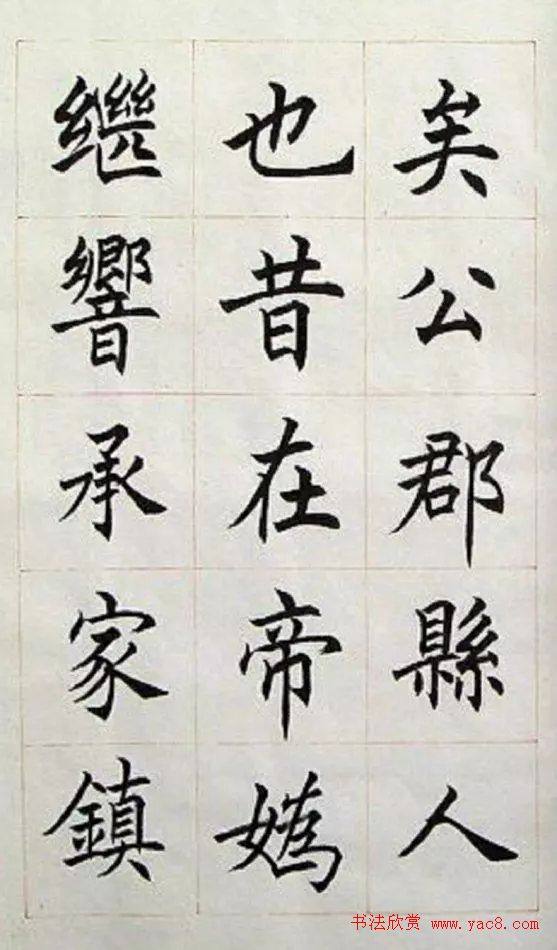 矣公郡縣人
也昔在帝媯
繼響承家鎮
书法欣赏 www.yac8.com